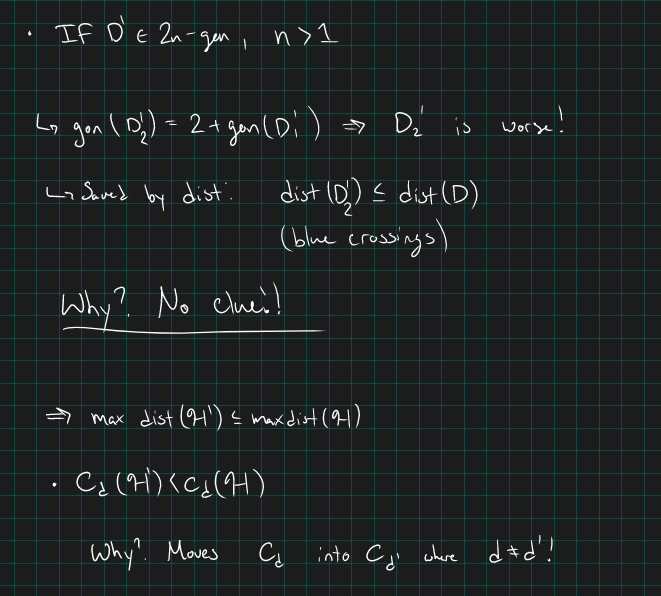 · IF D' ∈ 2n-gon, n > 1
↳ gon(D₂') = 2 + gon(D₁') ⇒ D₂' is worse!
↳ Saved by dist: dist(D₂') ≤ dist(D)
(blue crossings)
Why? No clue!!
⇒ max dist(H') ≤ max dist(H)
· C_d(H') < C_d(H)
Why? Moves C_d into C_d' where d ≠ d'!